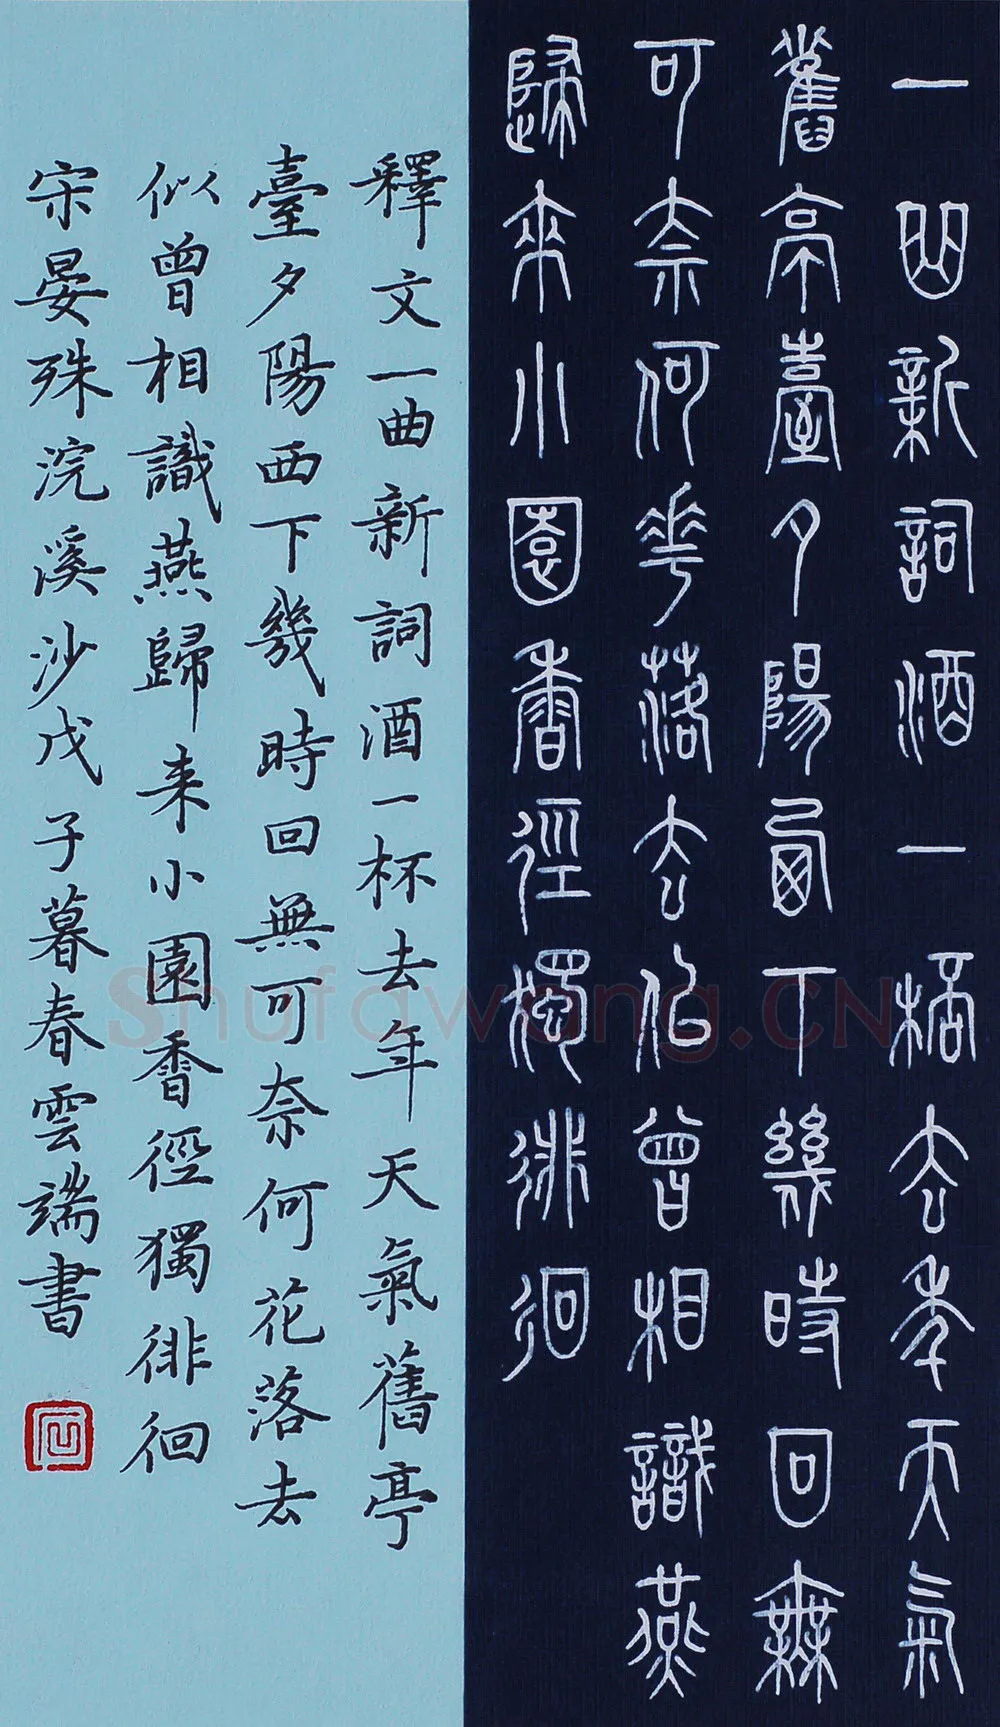 一曲新詞酒一桮去年天氣
舊亭臺夕陽西下幾時回無
可奈何花落去似曾相識燕
歸來小園香徑獨徘徊
釋文一曲新詞酒一杯去年天氣舊亭
臺夕陽西下幾時回無可奈何花落去
似曾相識燕歸来小園香徑獨徘徊
宋晏殊浣溪沙戊子暮春雲端書
Shufawang.CN